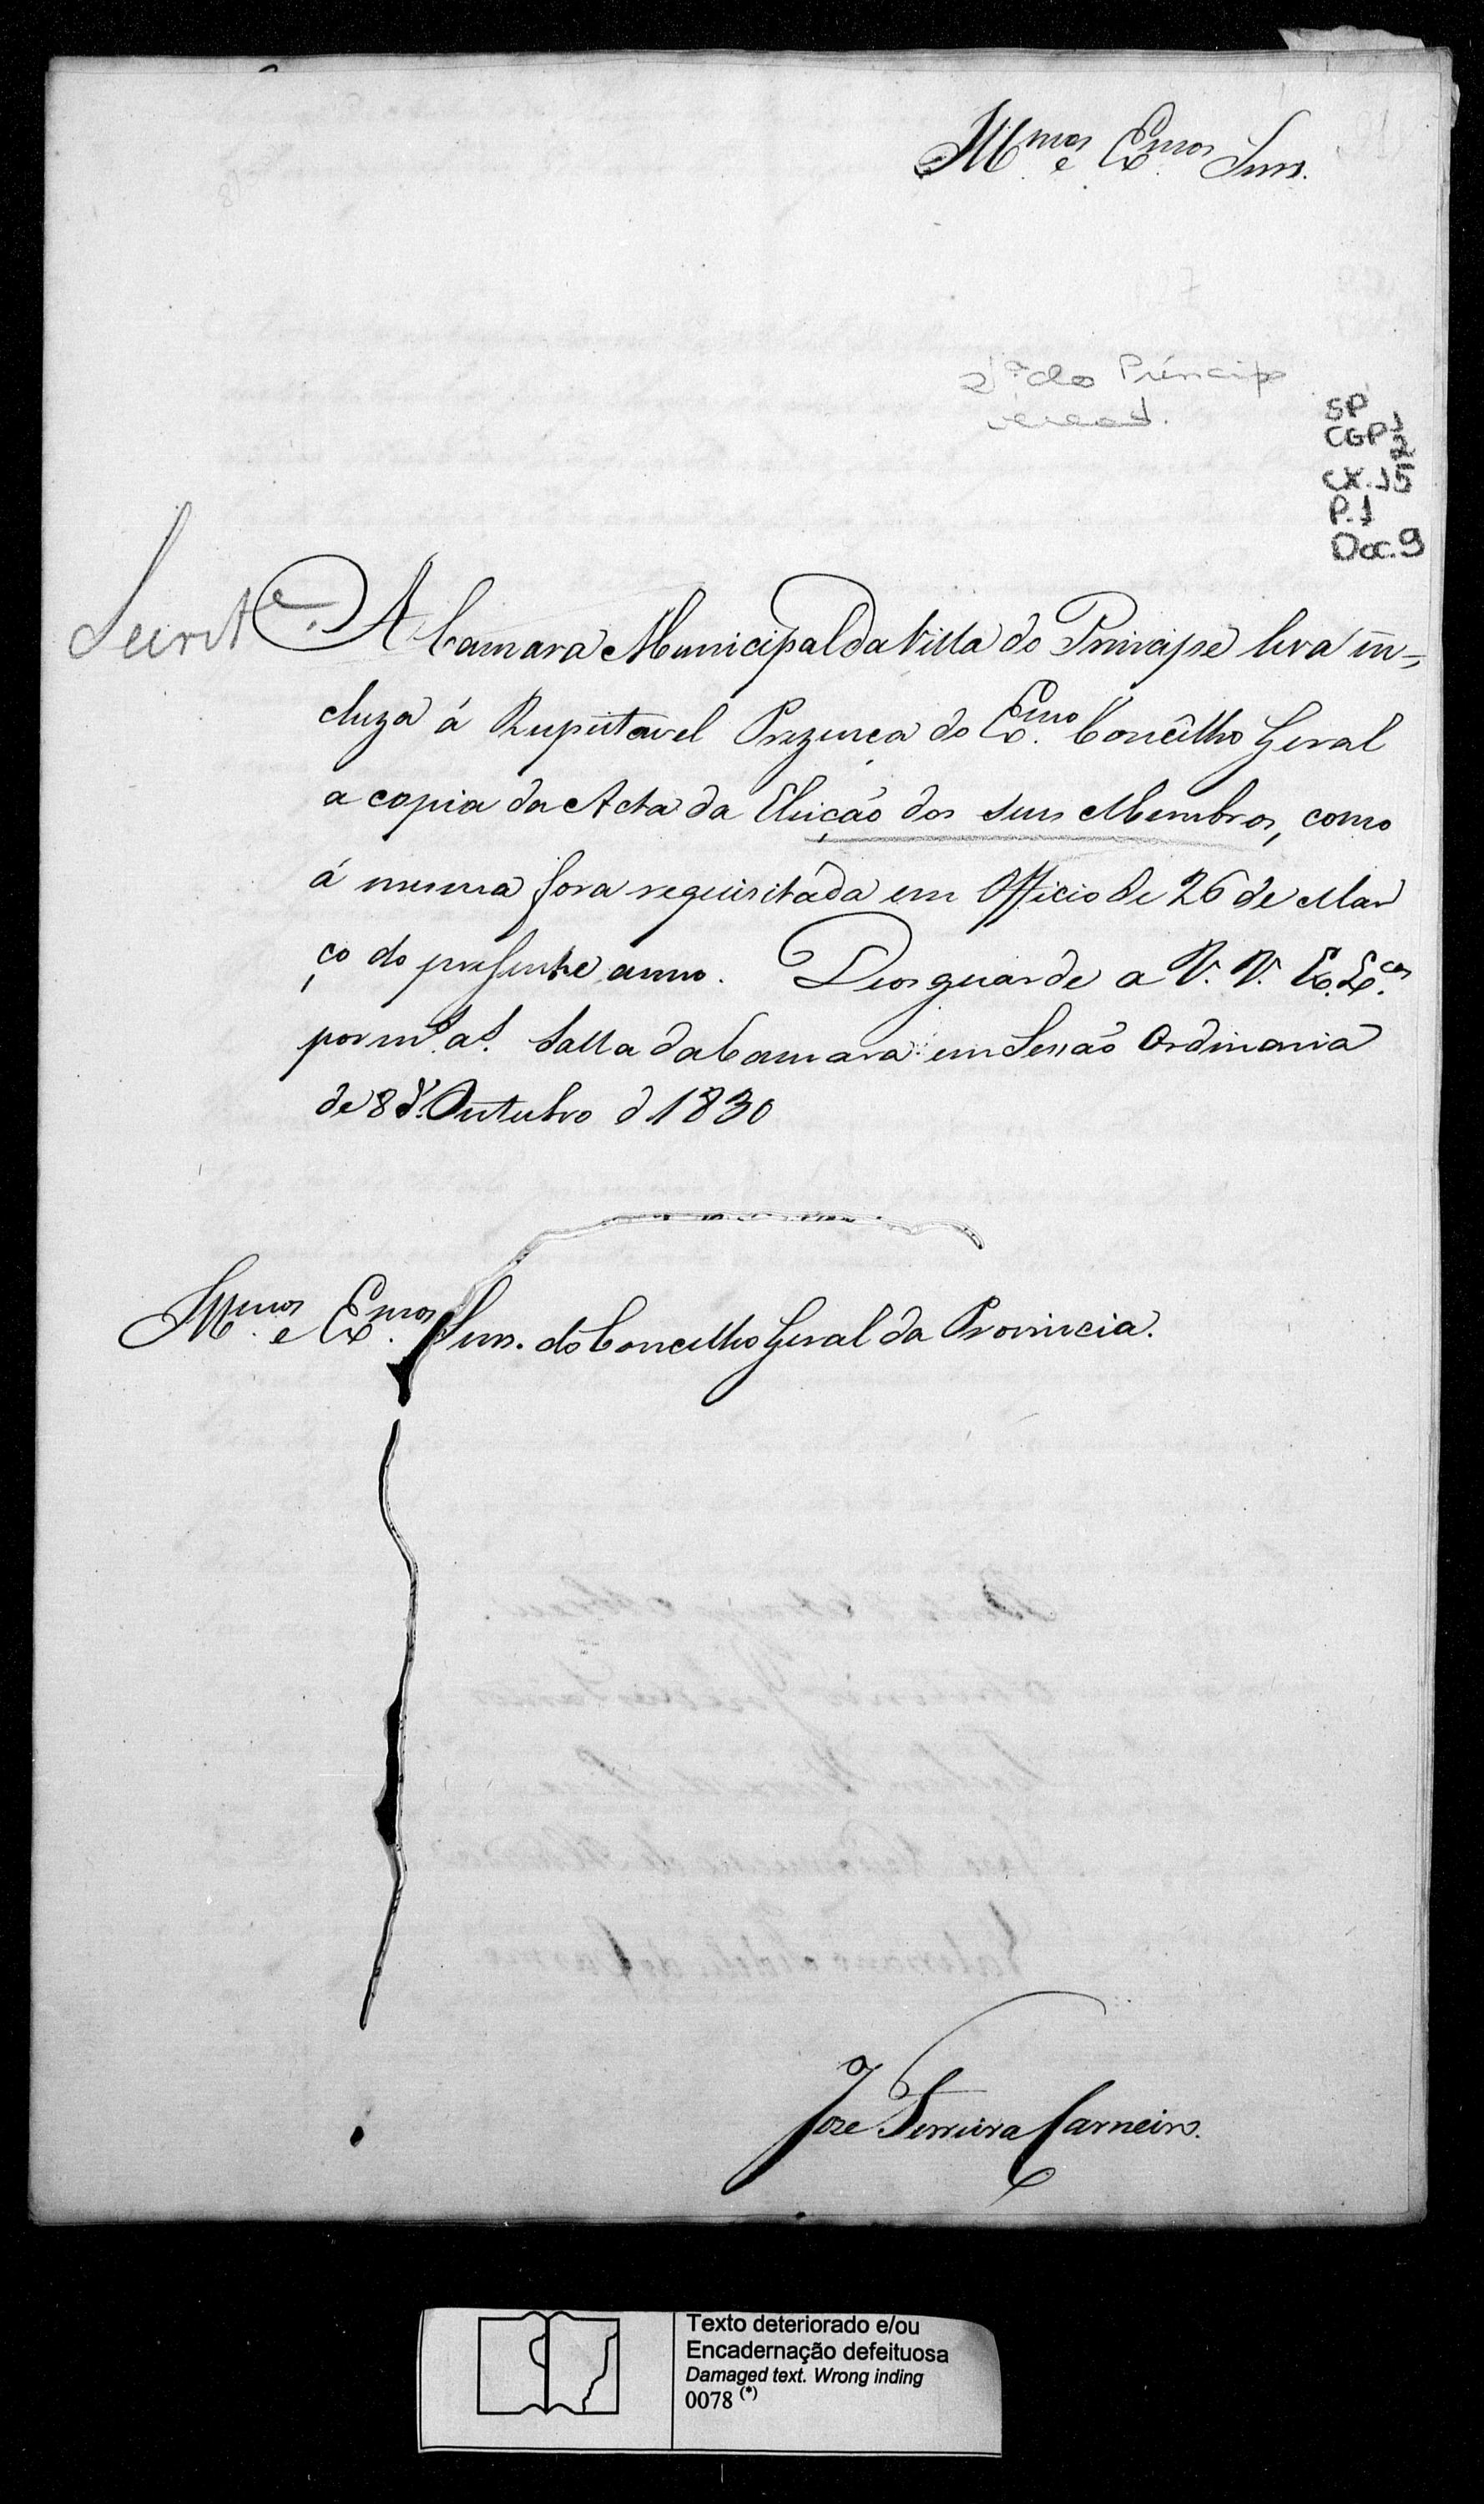 Illmos e Exmos Snrs.
Va do Princip
veread.
SP
CGP 1
2
CX. 15
P. 1
Doc. 9
A Camara Municipal da Villa do Principe leva in-
cluza á Respeitavel Prezença do Exmo Concêlho Geral
a copia da Acta da Eleição dos seus Membros, como
á mesma fora requisitáda em Officio de 26 de Mar
ço do prezente anno. Deos guarde a V. V. Ex. Ex.cas
por ms. as. Salla da Camara em Sessão Ordinaria
de 8 d' Outubro d 1830
Illmos e Exmos Snrs. do Concelho Geral da Provincia.
Joze Ferreira Carneiro.
Texto deteriorado e/ou
Encadernação defeituosa
Damaged text. Wrong inding
0078 (*)